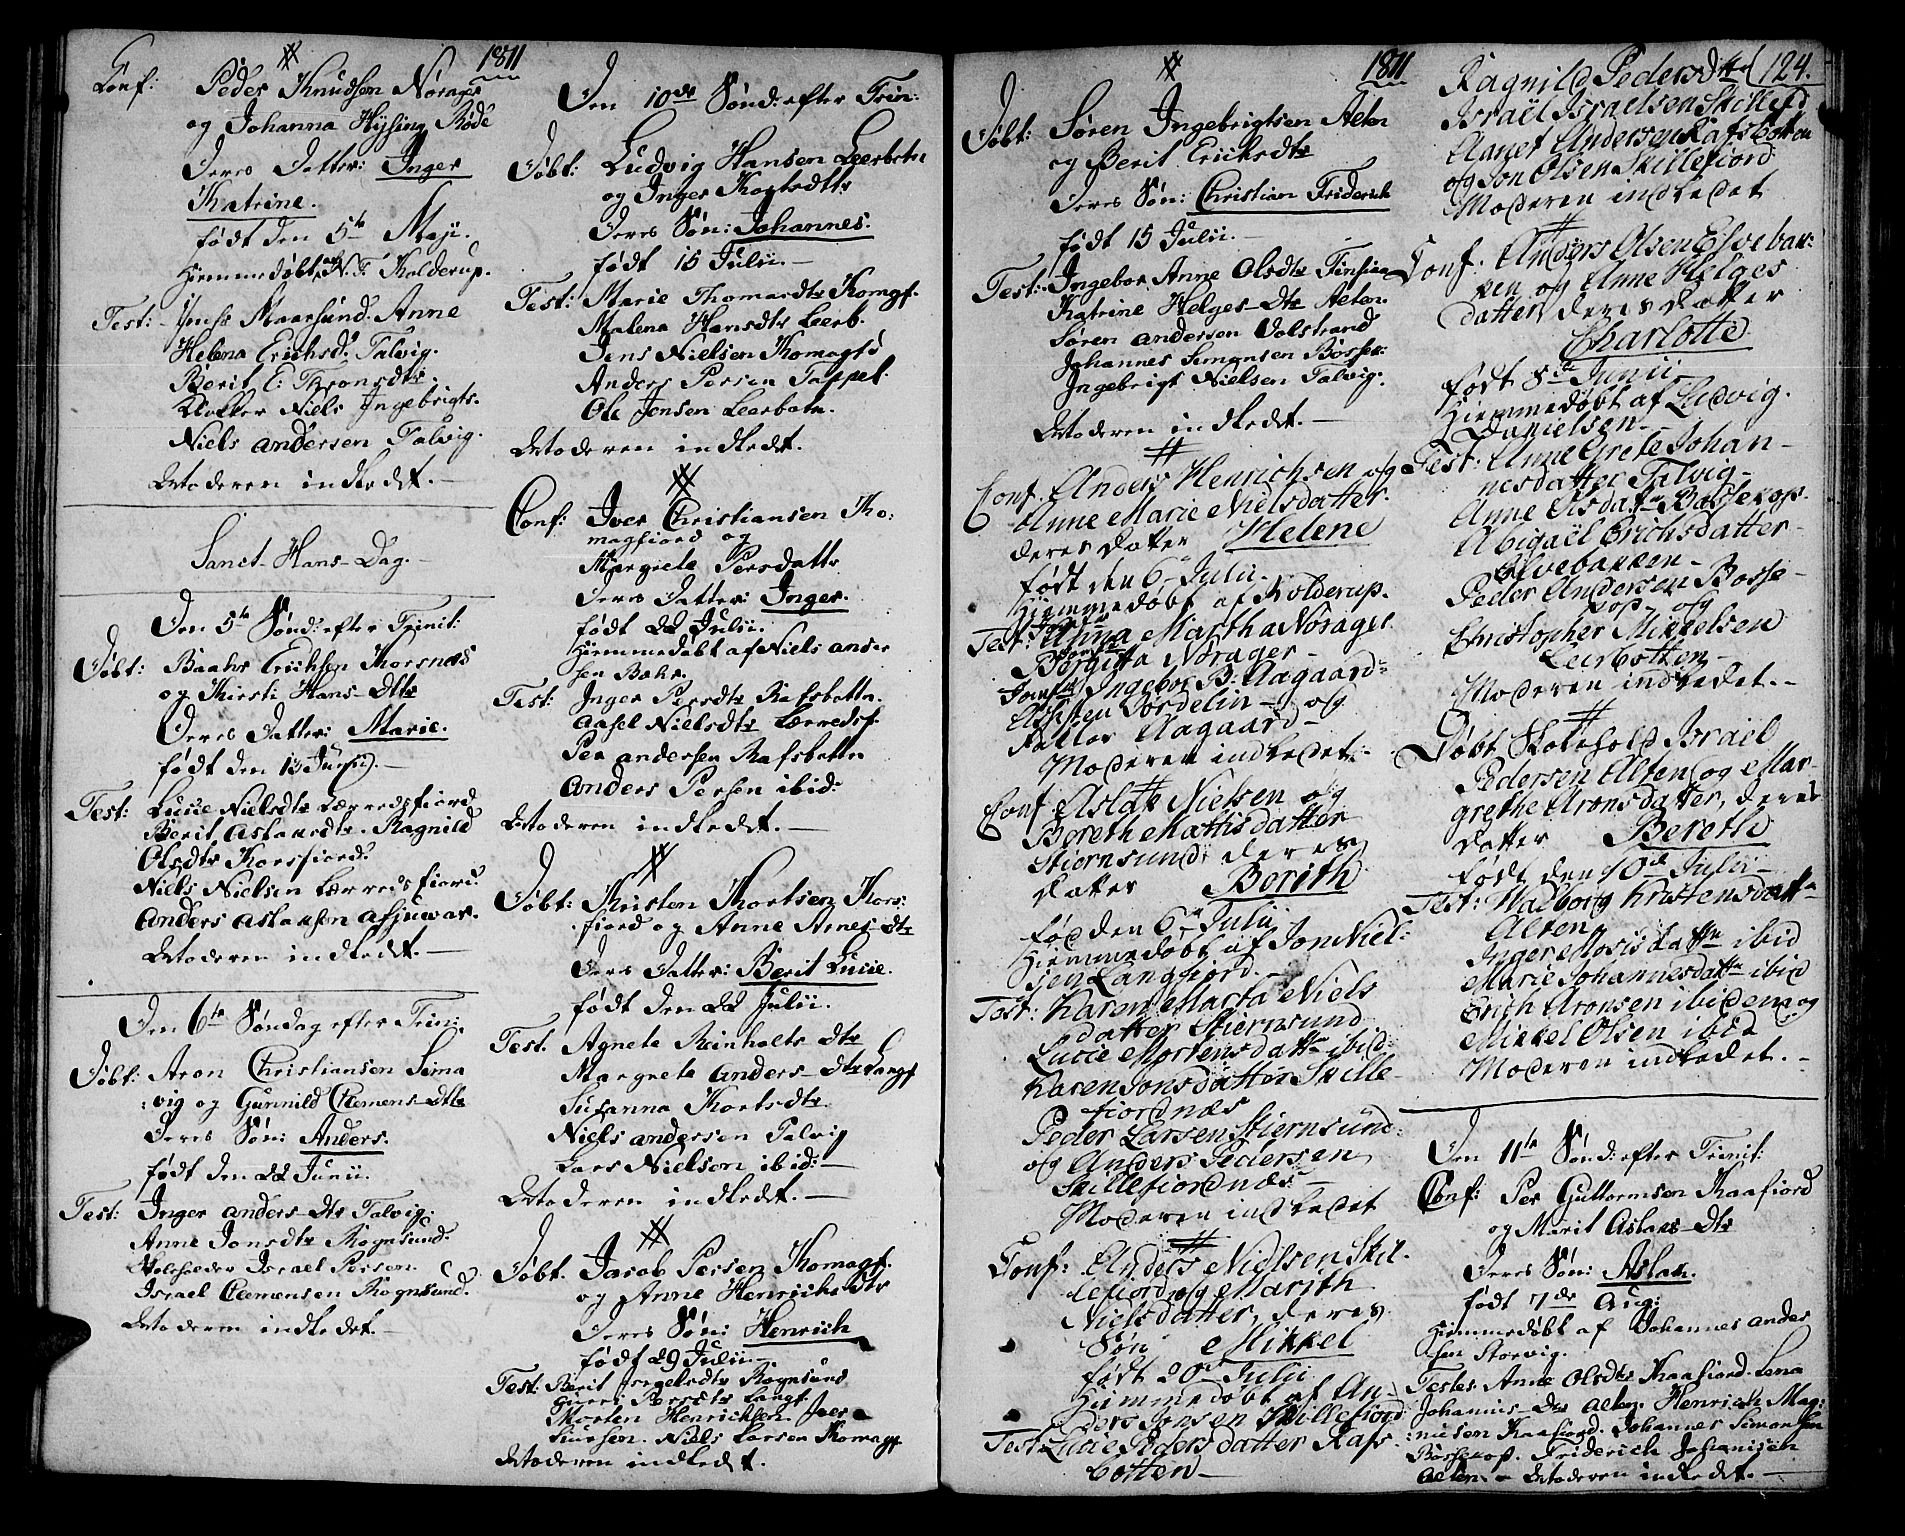 1811
Conf: Peder Knudsen Norager
og Johanna Hysing Rode
Deres Datter: Inger
Katrine.
født den 5te Maji.
hjemmedøbt af N. F. Kolderup.
Test: Maarsund. Anne
Helena Erichsd. Talvig.
Berit E: Thronsdtr.
Klokker Niels Ingebrigts.
Niels andersen Talvig.
Moderen indledet.
Sanct Hans Dag.
Den 5te Sønd: efter Trinit:
Døbt: Baahr Erichsen Korsnæs
og Kirsti Hans Dttr
Deres Datter: Marie.
født den 13 Junii.
Test: Lucie Nielsdtr Lærredsfiord
Berit Aslaksdtr. Ragnild
Olsdtr Korsfiord.
Niels Nielsen Lærredsfiord.
Anders Aslaksen
Moderen indledet.
Den 6te Søndag efter Trin:
Døbt: Aron Christiansen Sima
vig og Gunnild Clemens Dttr
Deres Søn: Anders.
født den 22 Junii.
Test: Inger anders Dtr Talvig.
Anne Jonsdtr Rognsund.
Skoleholder Israel Persen.
Israel Clemensen Rognsund.
Moderen indledet.
Den 10de Sønd: efter Trin:
Døbt: Ludvig Hansen Leerbotn
og Inger Kortsdtr
Deres Søn: Johannes.
født 15 Julii.
Test: Marie Thomasdtr Komagf.
Malena Hansdtr Leerb.
Jens Nielsen Komagfi
Anders Persen Tappel.
Ole Jensen Leerbotn.
Moderen indledet.
Conf: Iver Christiansen Ko:
magfiord og
Margrete Persdattr
Deres Datter: Inger.
født 22 Julii.
hjemmedøbt af Niels ander
sen Bahr.
Test: Inger Persdtr Rafsbotn.
Aasel Nielsdtr Lærredsf.
Per andersen Rafsbotn
Anders Persen ibid:
Moderen indledet.
Døbt: Kristen Kortsen Kors:
fiord og Anne Arnes Dtr
Deres Datter: Berit Lucie.
født den 22 Julii.
Test. Agnete Reinholts Dtr
Margrete anders Dtr Langf
Susanna Kortsdtr
Niels andersen Talvig
Lars Nielsen ibid:
Moderen indledet.
Døbt. Jacob Persen Komagf.
og Anne Henrichs Dtr
Deres Søn: Henrich
født 29 Julii.
Test: Berit Rognsund
Persdtr Langf
Morten Henrichsen. Iver
Siursen. Niels Larsen Komagf
Moderen indledet.
1811
Døbt: Søren Ingebrigtsen Alten
og Berit Erichsdtr
Deres Søn: Christian Friderich
født 15 Julii.
Test: Ingebor Anne Olsdtr
Katrine Helges Dtr Alten.
Søren andersen Qolstrand
Johannes Simonsen Bosse:
Ingebrigt Nielsen Talvig.
Moderen indledet.
Conf. Anders Henrichsen og
Anne Marie Nielsdatter
deres Datter Helene
født den 6te Julii.
Hjemmedøbt af Kolderup.
Test: Anna Martha Norager
Birgitta Norager
Jomfr Ingebor B: Aagaard
og
Aagaard
Moderen indledet.
Conf Aslak Nielsen og
Bereth Mattisdatter
Stiernsund deres
Datter Berith
fød den 6te Julii
Hjemmedøbt af Jon Niel:
sen Langfiord.
Test: Karen Marta Niels
datter Stiernsund
Lucie Mortensdattr ibid:
Karen Jonsdatter Skille
fiordnæs
Peder Larsen Stiernsund
og Anders Pedersen
Skillefiordnæs
Moderen indledet
Conf: Anders Nielsen Skil
lefiord og Marith
Nielsdatter, deres
Søn Mikkel
født 20de Julii
Hjemmedøbt af An
ders Jonsen Skillefiord
Test: Lucie Pedersdatter Rafs
botten
124.
Ragnild Pedersdttr
Israël Israelsen Skillefd
Aanet Andersen Rafsbotten
og Jon Olsen Skillefiord
Moderen indledet
Conf: Anders Olsen Elvebak:
ken og Anne Helges
datter deres datter
Charlotte
født 8de Junii
hjemmedøbt af Ludvig.
Danielsen
Test: Anne Grete Johan
nesdatter Talvig
Anne Olsdattr Bossekop
Abigaël Erichsdatter
Elvebakken
Peder Andersen Bosse
kop og
Christopher Mikkelsen
Leerbotten
Moderen indledet.
Døbt Skolehold Israel
Pedersen Alten og Mar
grethe Aronsdatter, deres
datter Bereth
født den 10de Julii
Test: Walborg Kristensdattr
Alten
Inger Mosisdattr ibid
Marie Johannesdattr ibid
Erich Aronsen ibidem og
Mikkel Olsen ibid
Moderen indledet.
Den 11te Sønd: efter Trinit:
Conf: Per Guttormsen Kaafiord
og Marit Aslaks Dtr
Deres Søn: Aslak.
født 7de Aug:
hjemmedøbt af Johannes ander
sen Storvig.
Testes Anne Olsdtr Kaafiord. Lena
Johannis Dtr Alten. Henrich Mag:
niesen Kaafiord. Johannes Simonsen
Bossekop. Friderich Johanisen
Alten. Moderen indledet.